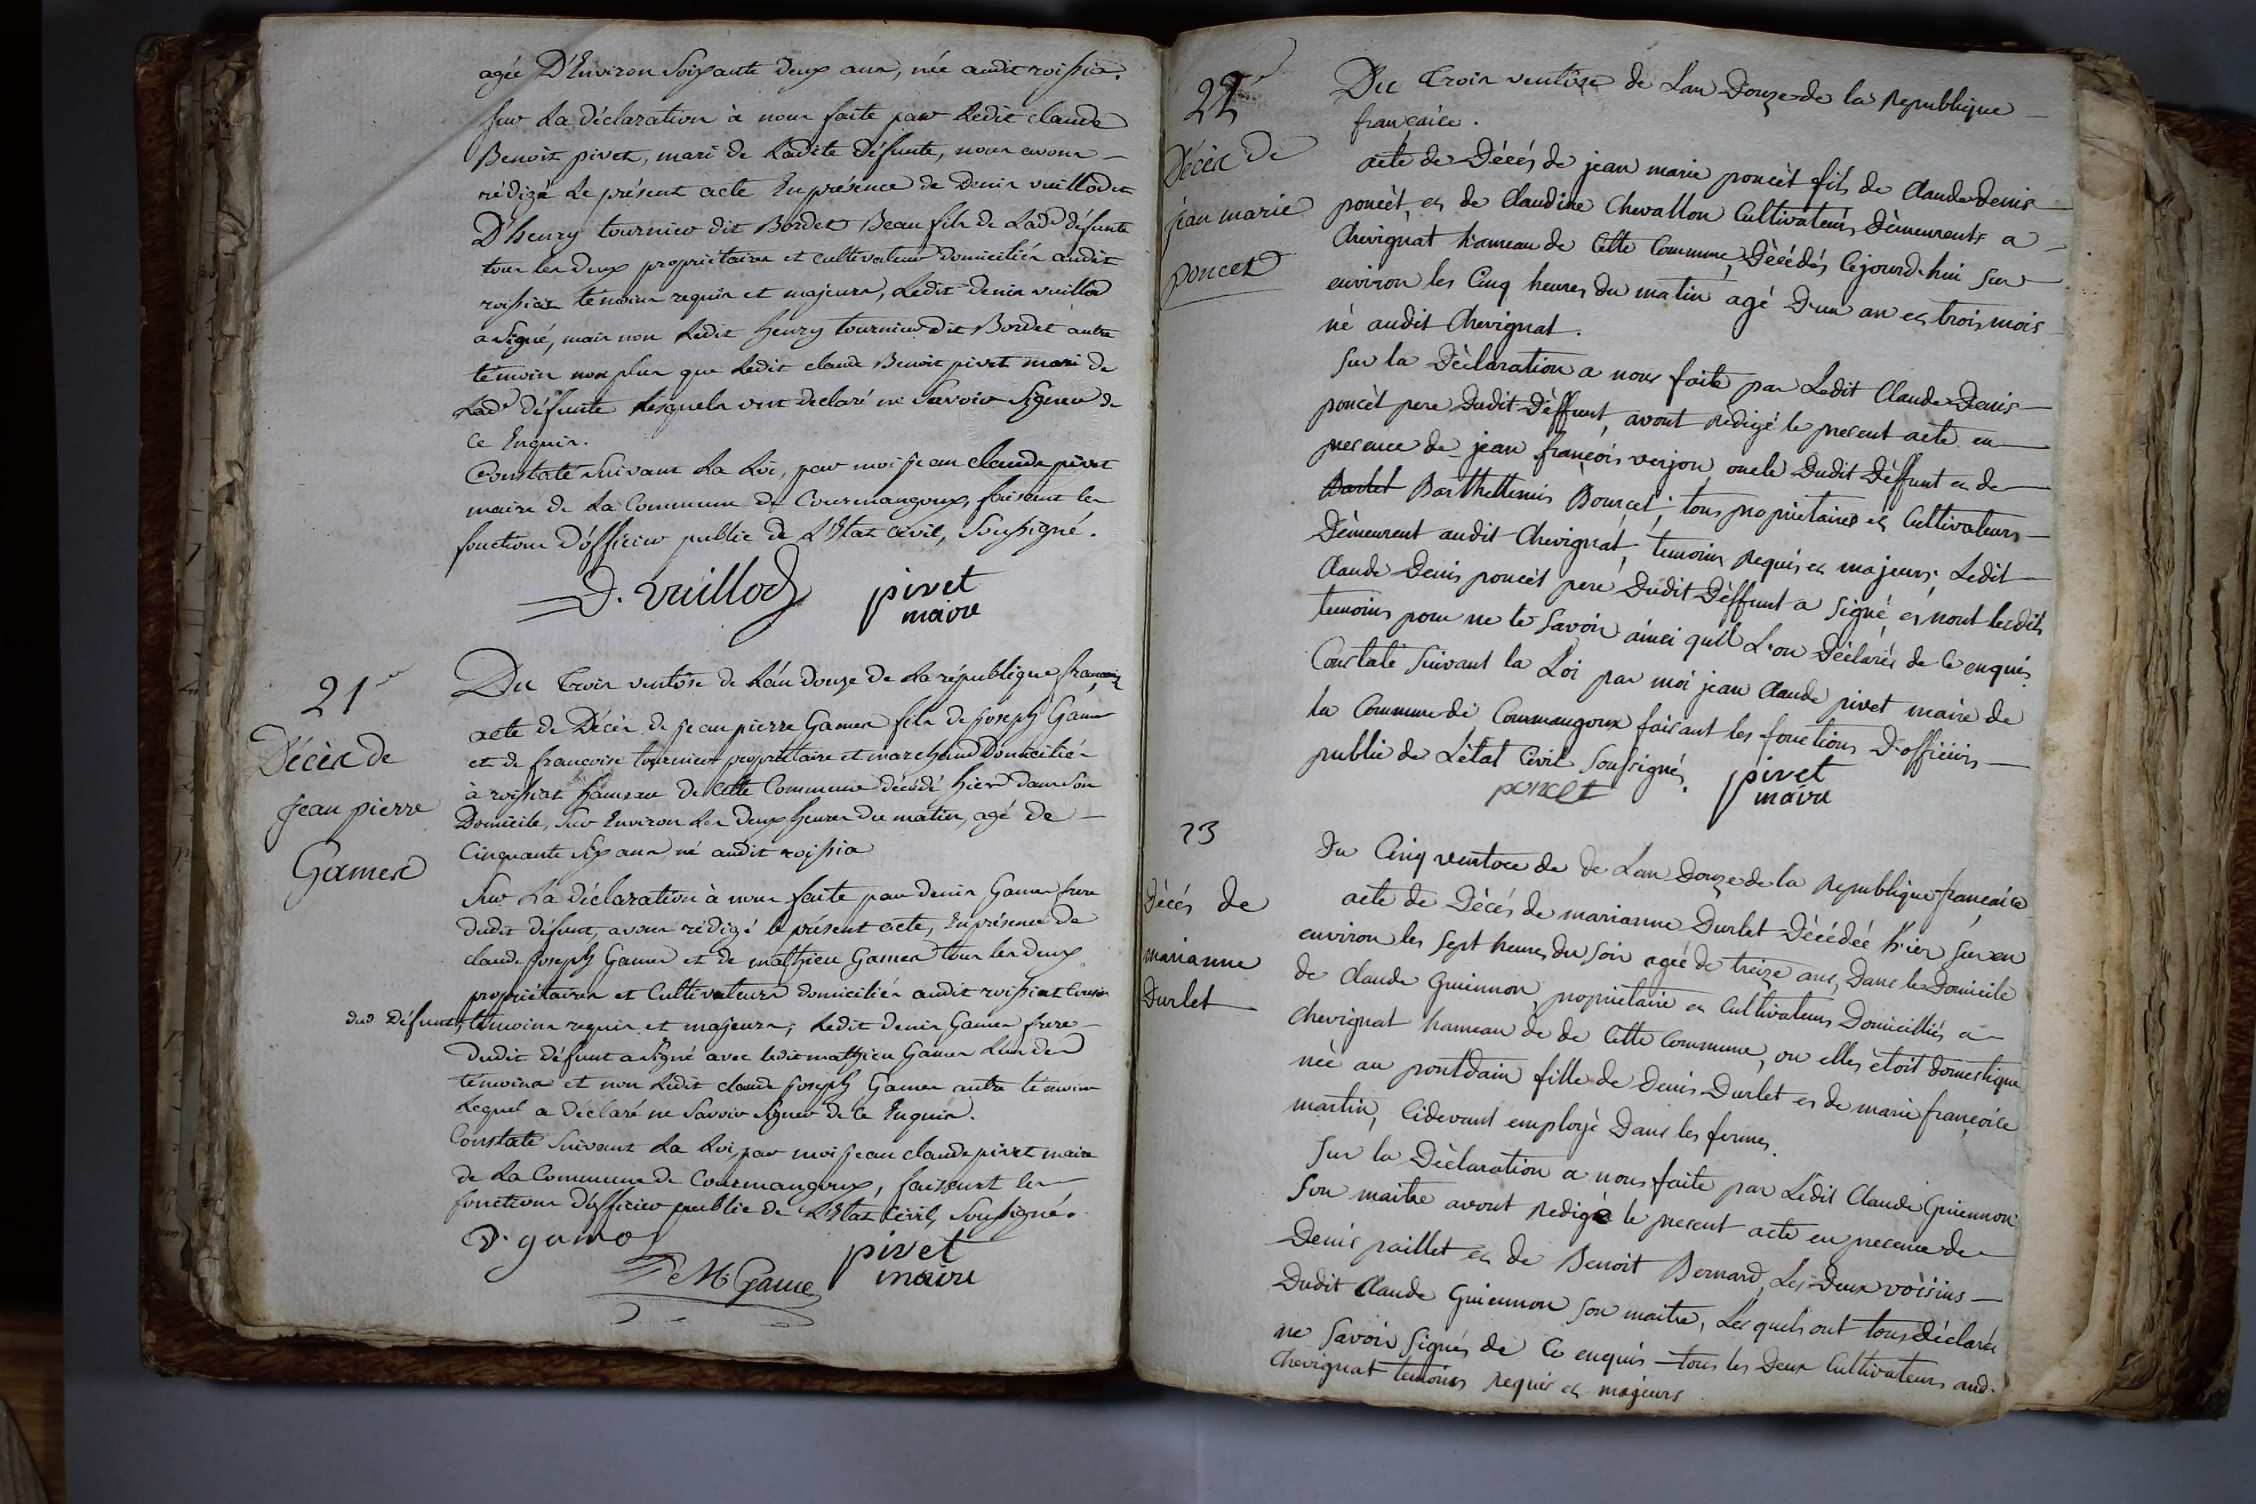 agée D'Environ Soixante deux ans, née audit roissia.
Sur La déclaration à nous faite par Ledit claude
Benoit pivet, mari de Ladite défunte, nous avons
rédigé Le présent acte En présence de Denis vuillod et
D'henry tournier dit Bordet Beau fils de Lad.e défunte
tous les deux propriétaires et cultivateurs Domiciliés audit
roissiat témoins requis et majeurs, Ledit denis vuillod
a Signé, mais non Ledit henry tournier dit Bordet autre
témoin non plus que Ledit claude Benoit pivet mari de
Lad.e défunte lesquels ont déclaré ne Savoir Signer de
Ce Enquis.
Constaté Suivant La Loi, par moi jean claude pivet
maire de La Commune de Courmangoux, faisant les
fonctions d'officier public de L'Etat civil, Soussigné.
D. vuillod pivet
maire
21
Décès de
jean pierre
Gamen
Du trois ventôse de L'an douze de La république française
acte de Décès de jean pierre Gamen fils de joseph Game
et de françoise tournier propriétaire et marchand Domiciliés
à roissiat hameau de cette Commune décédé hier dans son
Domicile, sur Environ Les deux heures du matin, agé de
Cinquante Six ans, né audit roissia
Sur La déclaration à nous faite par denis Gamen frere
dudit défunt, avons rédigé le présent acte, En présence de
claude joseph Gamen et de mathieu Gamen tous les deux
propriétaires et Cultivateurs domiciliés audit roissiat Cousin
dud défunt, témoins requis et majeurs; Ledit denis Gamen frere
dudit défunt a Signé avec ledit mathieu Gamen L'un des
témoins et non Ledit claude joseph Gamen autre témoin
Lequel a déclaré ne Savoir Signer de Ce Enquis.
Constaté Suivant La Loi, par moi jean claude pivet maire
de La Commune de Courmangoux, faisant les
fonctions d'officier public de L'Etat Civil, Soussigné.
D. game pivet
M. Game maire
22
Décès de
jean marie
poncet
Du trois ventôse de Lan Douze de la Republique
françaice.
acte de Décés de jean marie poncèt fils de Claude denis
poncèt, et de Claudine Chevallon Cultivateurs Dèmeurents a
Chevignat hameau de Cette Commune, Dècédés Cejourd-hui sur
environ les Cinq heures du matin agé D'un an et trois mois
né audit Chevignat.
Sur la Dèclaration a nous faite par Ledit Claude Denis
poncèt pere Dudit Dèffunt, avont redigé le present acte en
presence de jean françois verjon oncle Dudit Dèffunt et de
Barlet Barthellemis Bourcet, tous proprietaires et Cultivateurs
Dèmeurent audit Chevignat, temoins requis et majeurs, Ledit
Claude Denis poncèt pere Dudit Dèffunt a signé, et nont lesdits
temoins pour ne le Savoir ainsi quil L'on Dèclarés de Ce enquis.
Constaté Suivant la Loi par moi jean Claude pivet maire de
la Commune de Courmangoux faisant les fonctions D'officiers
public de L'etat Civil Soussignés.
poncet pivet
maire
23
Dècés de
marianne
Durlet
Du Cinq ventoce de de Lan Douze de la Republique françaice
acte de Dècés de marianne Durlet Dècédée h'ier sur en
environ les sept heures du Soir ageé de treize ans, Dans le Domicile
de Claude Guiennon, proprietaire et Cultivateurs Domiciliés a
Chevignat hameau de de Cette Commune, ou elles ètoit domestique
neè au pontdain fille de Denis Durlet et de marie françoice
martin, Cidevant employè Dans les fermes.
Sur la Dèclaration a nous faite par Ledit Claude Guiennon
Son maitre avont redigé le present acte en presence de
Denis paillet et de Benoit Bernard, Les Deux voisins
Dudit Claude Guiennon son maitre, Lesquels ont tous déclarés
ne Savoir Signés de Ce enquis tous les Deux Cultivateurs aud.
Chevignat temoins requis et majeurs